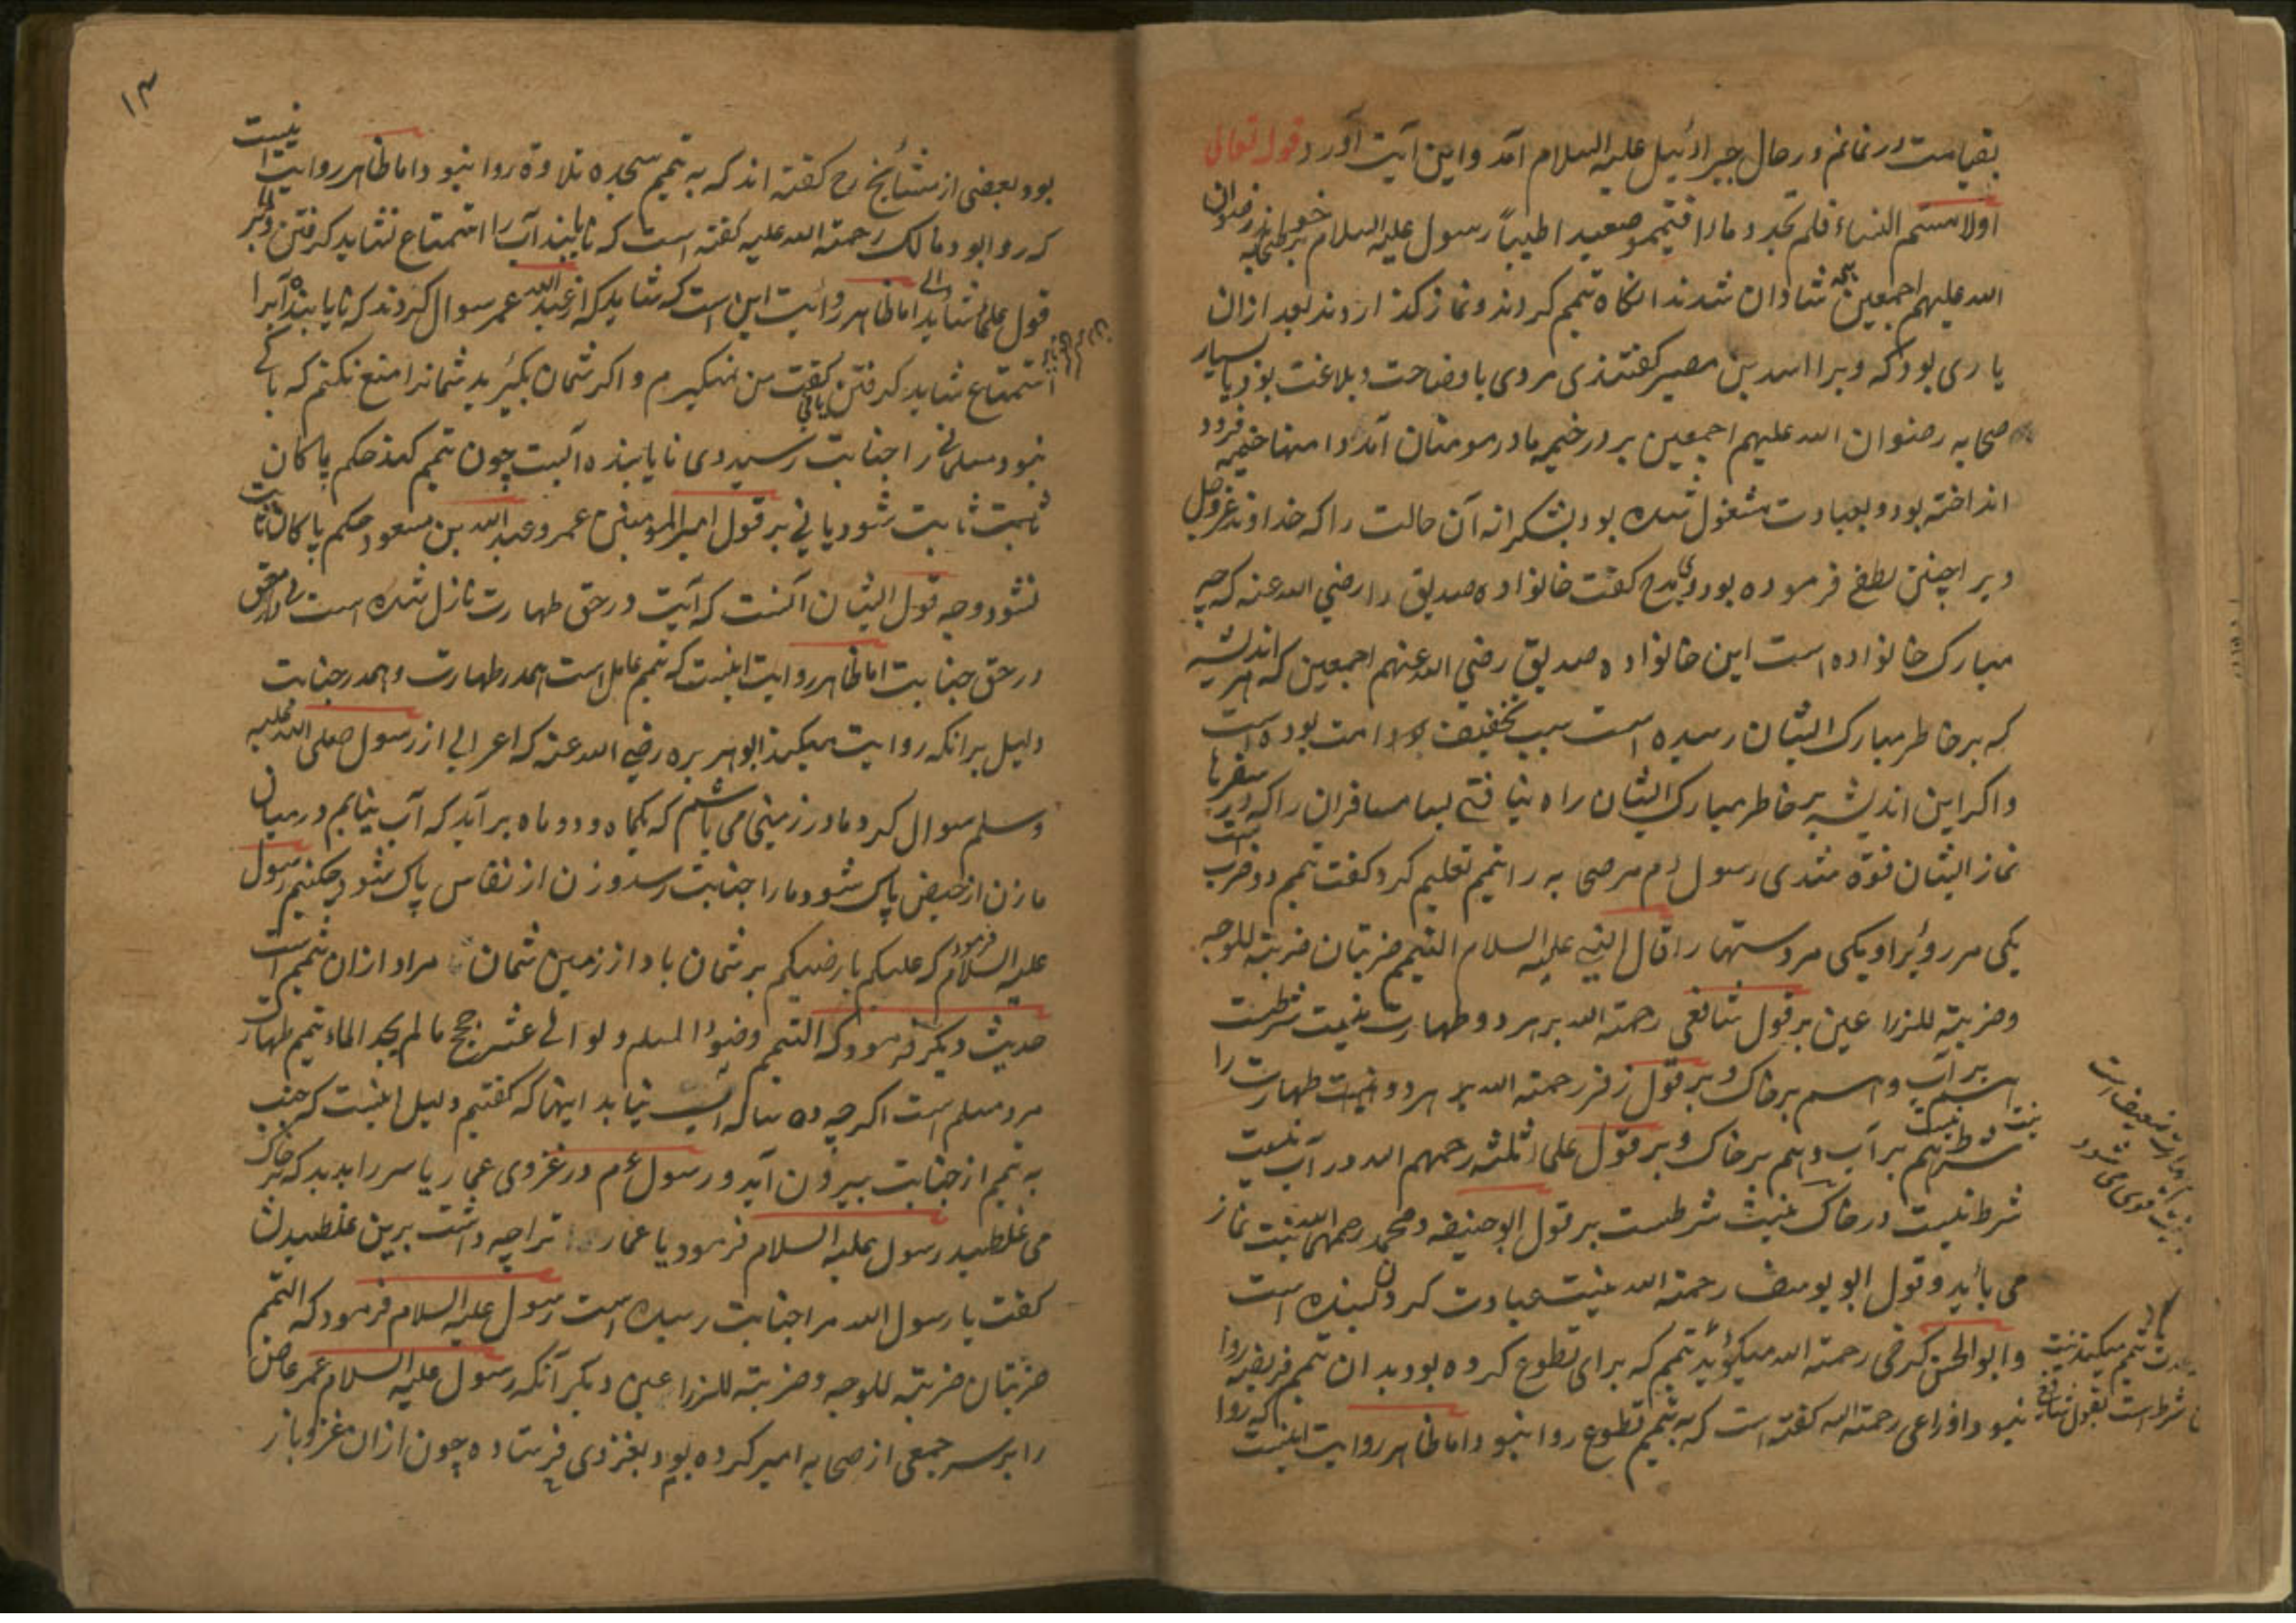 بقیامت در نمانم در حال جبرائیل علیه السلام آمد و این آیت آورد قوله تعالی
اولامستم النساء فلم تجدوا ماءا فتیمموا صعیدا طیباً رسول علیه السلام صحابه رضوان
الله علیهم اجمعین شادان شدند آنکاه تیمم کردند و نماز کذاردند بعد ازان
یاری بود که ویرا اسد بن مصیر کفتندی مردی با وضاحت و بلاغت بود
صحابه رضوان الله علیهم اجمعین بر در خیمه مادر مومنان آمد و خیمه فرود
انداخته بود و بعبادت مشغول شده بود بشکرانه آن حالت را که خداوند عزوجل
ویرا چنین لطف فرموده بود مدح کفت خانواده صدیق را رضی الله عنه که چه
مبارک خانواده است این خانواده صدیق رضی الله عنهم اجمعین که هر اندیشه
که بر خاطر مبارک ایشان رسیده است سبب تخفیف امت بوده است
و اکر این اندیشه بر خاطر مبارک ایشان راه نیافتی بسا مسافران را که در سفرها
نماز ایشان فوة شدی رسول ءم مر صحابه را تیمم تعلیم کرد کفت تیمم دو ضرب است
یکی مر رویرا و یکی مر دستها را قال النبی علیه السلام التیمم ضربتان ضربته للوجه
و ضربته للذراعین بر قول شافعی رحمته الله بر هر دو طهارت نیت شرطست
هم بر آب و هم بر خاک و بر قول زفر رحمته الله بر هر دو نیت طهارت را
شرط نیست هم بر آب و هم بر خاک و بر قول علماء ثلثه رحمهم الله در آب نیت
شرط نیست در خاک نیت شرطست بر قول ابو حنیفه و محمد رحمهما الله نیت نماز
می باید و قول ابو یوسف رحمته الله نیت عبادت کردن بسنده است
و ابو الحسن کرخی رحمته الله میکوید تیمم که برای تطوع کرده بود بدان تیمم فریضه روا
نبود و اوزاعی رحمته الله کفته است که به تیمم تطوع روا نبود اما ظاهر روایت اینست که روا
۱۴
بود و بعضی از مشائخ رح کفته اند که به تیمم سجده تلاوة روا نبود اما ظاهر روایت اینست
که روا بود و مالک رحمته الله علیه کفته است که نایابنده آب را استمتاع نشاید کرفتن و بر
قول علما نشاید اما ظاهر روایت این است که شاید که از عبد الله عمر سوال کردند که نایابنده آبرا
استمتاع شاید کرفتن کفت من نمیکیرم و اکر شمان بکیرید شمانرا منع نکنم که باکی
نبود مسلمانی را جنابت رسید وی نایابنده آبست چون تیمم کند حکم پاکان
ثابت شود یا نی بر قول امیر المومنین عمر و عبد الله بن مسعود حکم پاکان ثابت
نشود وجه قول ایشان آنست که آیت در حق طهارت نازل شده است نی در
در حق جنابت اما ظاهر روایت اینست که تیمم عامل است هم در طهارت و هم در جنابت
دلیل بر آنکه روایت میکند ابو هریره رضی الله عنه که اعرابی از رسول صلی الله علیه
وسلم سوال کرد ما در زمینی می باشم که یکماه و دو ماه بر آید که آب نیابم در میان
ما زن از حیض پاک شود و ما را جنابت رسد و زن از نفاس پاک شود چکنیم رسول
علیه السلام فرمود که علیکم بارضیکم بر شمان باد از زمین شمان مراد ازان تیمم است
حدیث دیکر فرمود که التیمم وضوء المسلم ولو الی عشر حجج مالم یجد الماء تیمم طهارت
مرد مسلم است اکرچه ده سال آب نیابد اینها که کفتیم دلیل اینست که جنب
به تیمم از جنابت بیرون آید و رسول ءم در غزوی عمار یاسر را بدید که بر خاک
می غلطید رسول علیه السلام فرمود یا عمار ترا چه داشت برین غلطیدن
کفت یا رسول الله مرا جنابت رسیده است رسول علیه السلام فرمود که التیمم
ضربتان ضربته للوجه و ضربته للذراعین دیکر آنکه رسول علیه السلام عمر عاص
را بر سر جمعی از صحابه امیر کرده بود بغزوی فرستاده چون ازان غزو باز